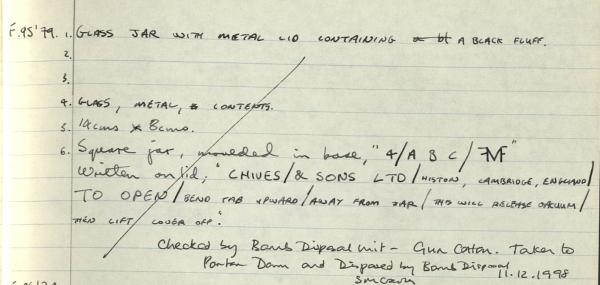 F.95'79. 1. GLASS JAR WITH METAL LID CONTAINING A BLACK FLUFF.
2.
3.
4. GLASS, METAL, CONTENTS.
5. 14cms x 8cms.
6. Square jar, moulded in base, "4/A B C/ FMF"
Written on lid, "CHIVES/& SONS LTD/HISTON, CAMBRIDGE, ENGLAND/
TO OPEN/BEND TAB UPWARD/AWAY FROM JAR/THIS WILL RELEASE VACUUM/
THEN LIFT COVER OFF".
Checked by Bomb Disposal Unit - Gun Cotton. Taken to
Porton Down and Disposed by Bomb Disposal
11.12.1998